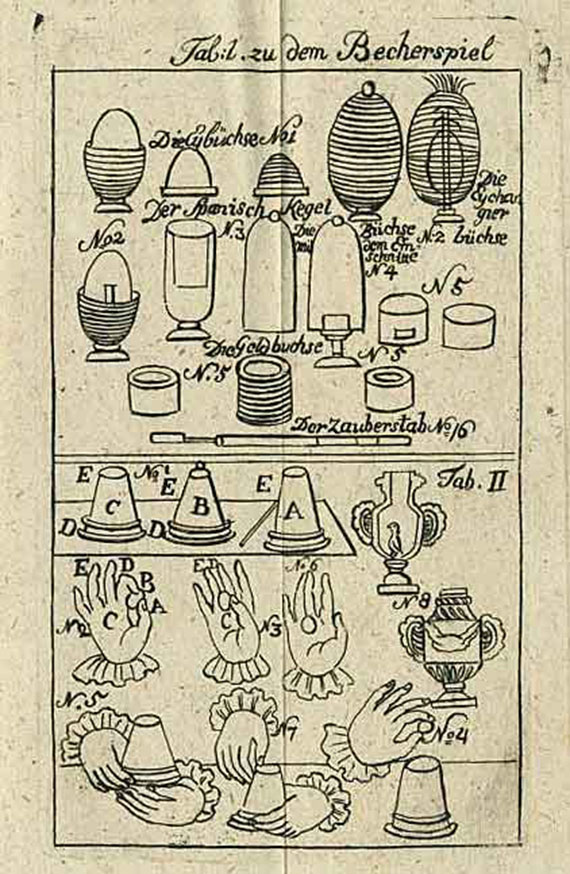 Tab: I. zu dem Becherspiel
Die Eybüchse No 1
Der Spanisch Kegel
Die
gier
büchse
No 2
N. 3
Die
mit
Büchse
dem Ein
schnitte
N. 4
N. 2
N 5
Die Geldbuchse
N. 5
N. 5
Der Zauberstab No 16
Tab. II
E
No 1
E
E
C
B
A
D
D
E
D
B
A
C
No 2
E
C
N 3
No 6
N 8
N. 5
N 7
No 4